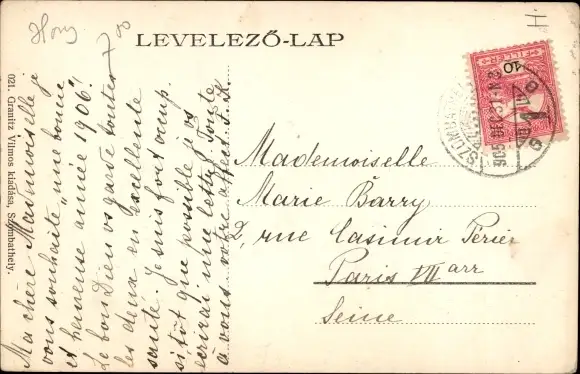 Hong
H
LEVELEZŐ-LAP
FILLÉR
10
905 DEC 31
Mademoiselle
Marie Barry
2, rue Casimir Périer
Paris VII arr
Seine
Ma chère Mademoiselle je
vous souhaite "une bonne
et heureuse année 1906!
Le bon Dieu vs garde toutes
les deux en excellente
santé. Je suis fort occup.
sitôt que possible je vs
écrirai une lettre. Toute
à vous votre affect.
021. Granitz Vilmos kiadása, Szombathely.